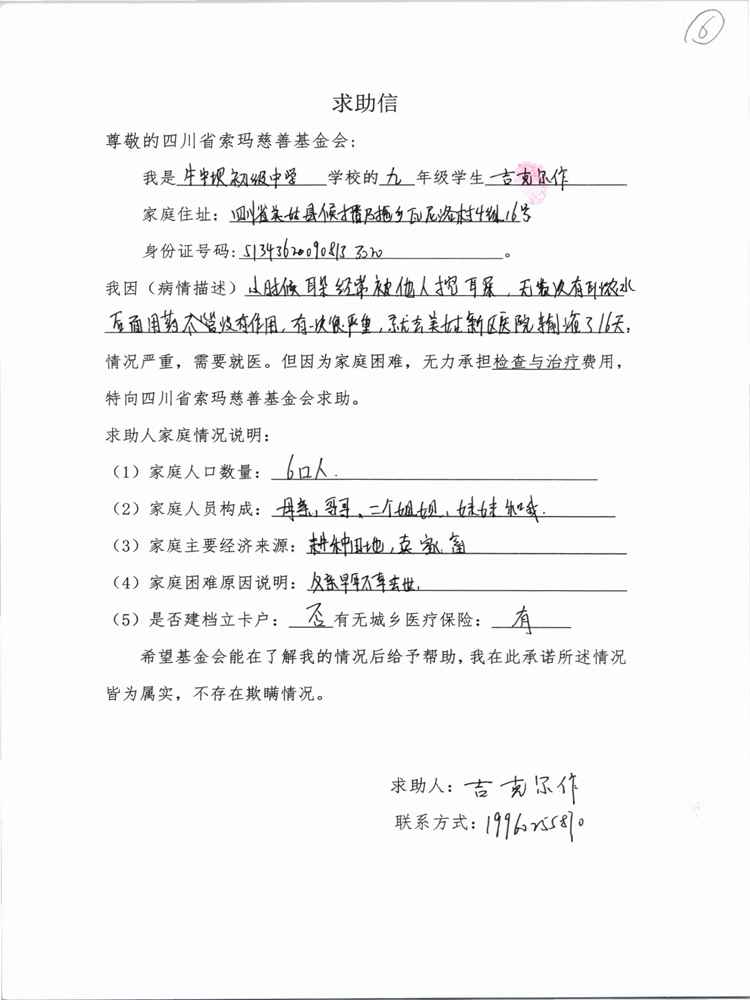 ⑥
求助信
尊敬的四川省索玛慈善基金会:
我是 牛牛坝初级中学 学校的 九 年级学生 吉克尔作
家庭住址: 四川省美姑县候播乃拖乡瓦尼洛村4组16号
身份证号码: 513436200908133020 。
我因（病情描述）小时候耳朵经常被他人挖耳屎，无数次有耳脓水
后面用药不管没有作用，有一次很严重，就去美姑新区医院输液了16天,
情况严重，需要就医。但因为家庭困难，无力承担检查与治疗费用，
特向四川省索玛慈善基金会求助。
求助人家庭情况说明:
（1）家庭人口数量: 6口人.
（2）家庭人员构成: 母亲, 哥哥、二个姐姐, 妹妹和我.
（3）家庭主要经济来源: 耕种田地, 卖家畜
（4）家庭困难原因说明: 父亲早年不幸去世.
（5）是否建档立卡户: 否 有无城乡医疗保险: 有
希望基金会能在了解我的情况后给予帮助，我在此承诺所述情况
皆为属实，不存在欺瞒情况。
求助人: 吉克尔作
联系方式: 19960255870